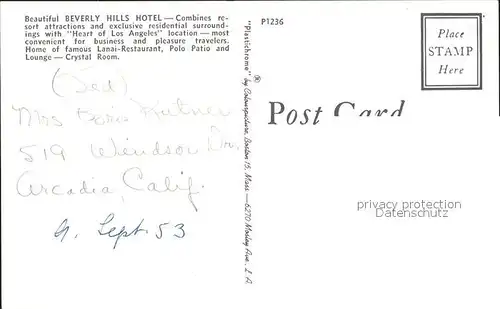 Beautiful BEVERLY HILLS HOTEL — Combines re-
sort attractions and exclusive residential surround-
ings with "Heart of Los Angeles" location — most
convenient for business and pleasure travelers.
Home of famous Lanai-Restaurant, Polo Patio and
Lounge — Crystal Room.
(Ted)
Mrs Doris Kutner
519 Windsor Dr.
Arcadia, Calif.
Sept. 53
"Plastichrome" ® by Colourpicture, Boston 15, Mass.—6270 Mosley Ave., L. A.
P1236
Place
STAMP
Here
Post Card
privacy protection
Datenschutz